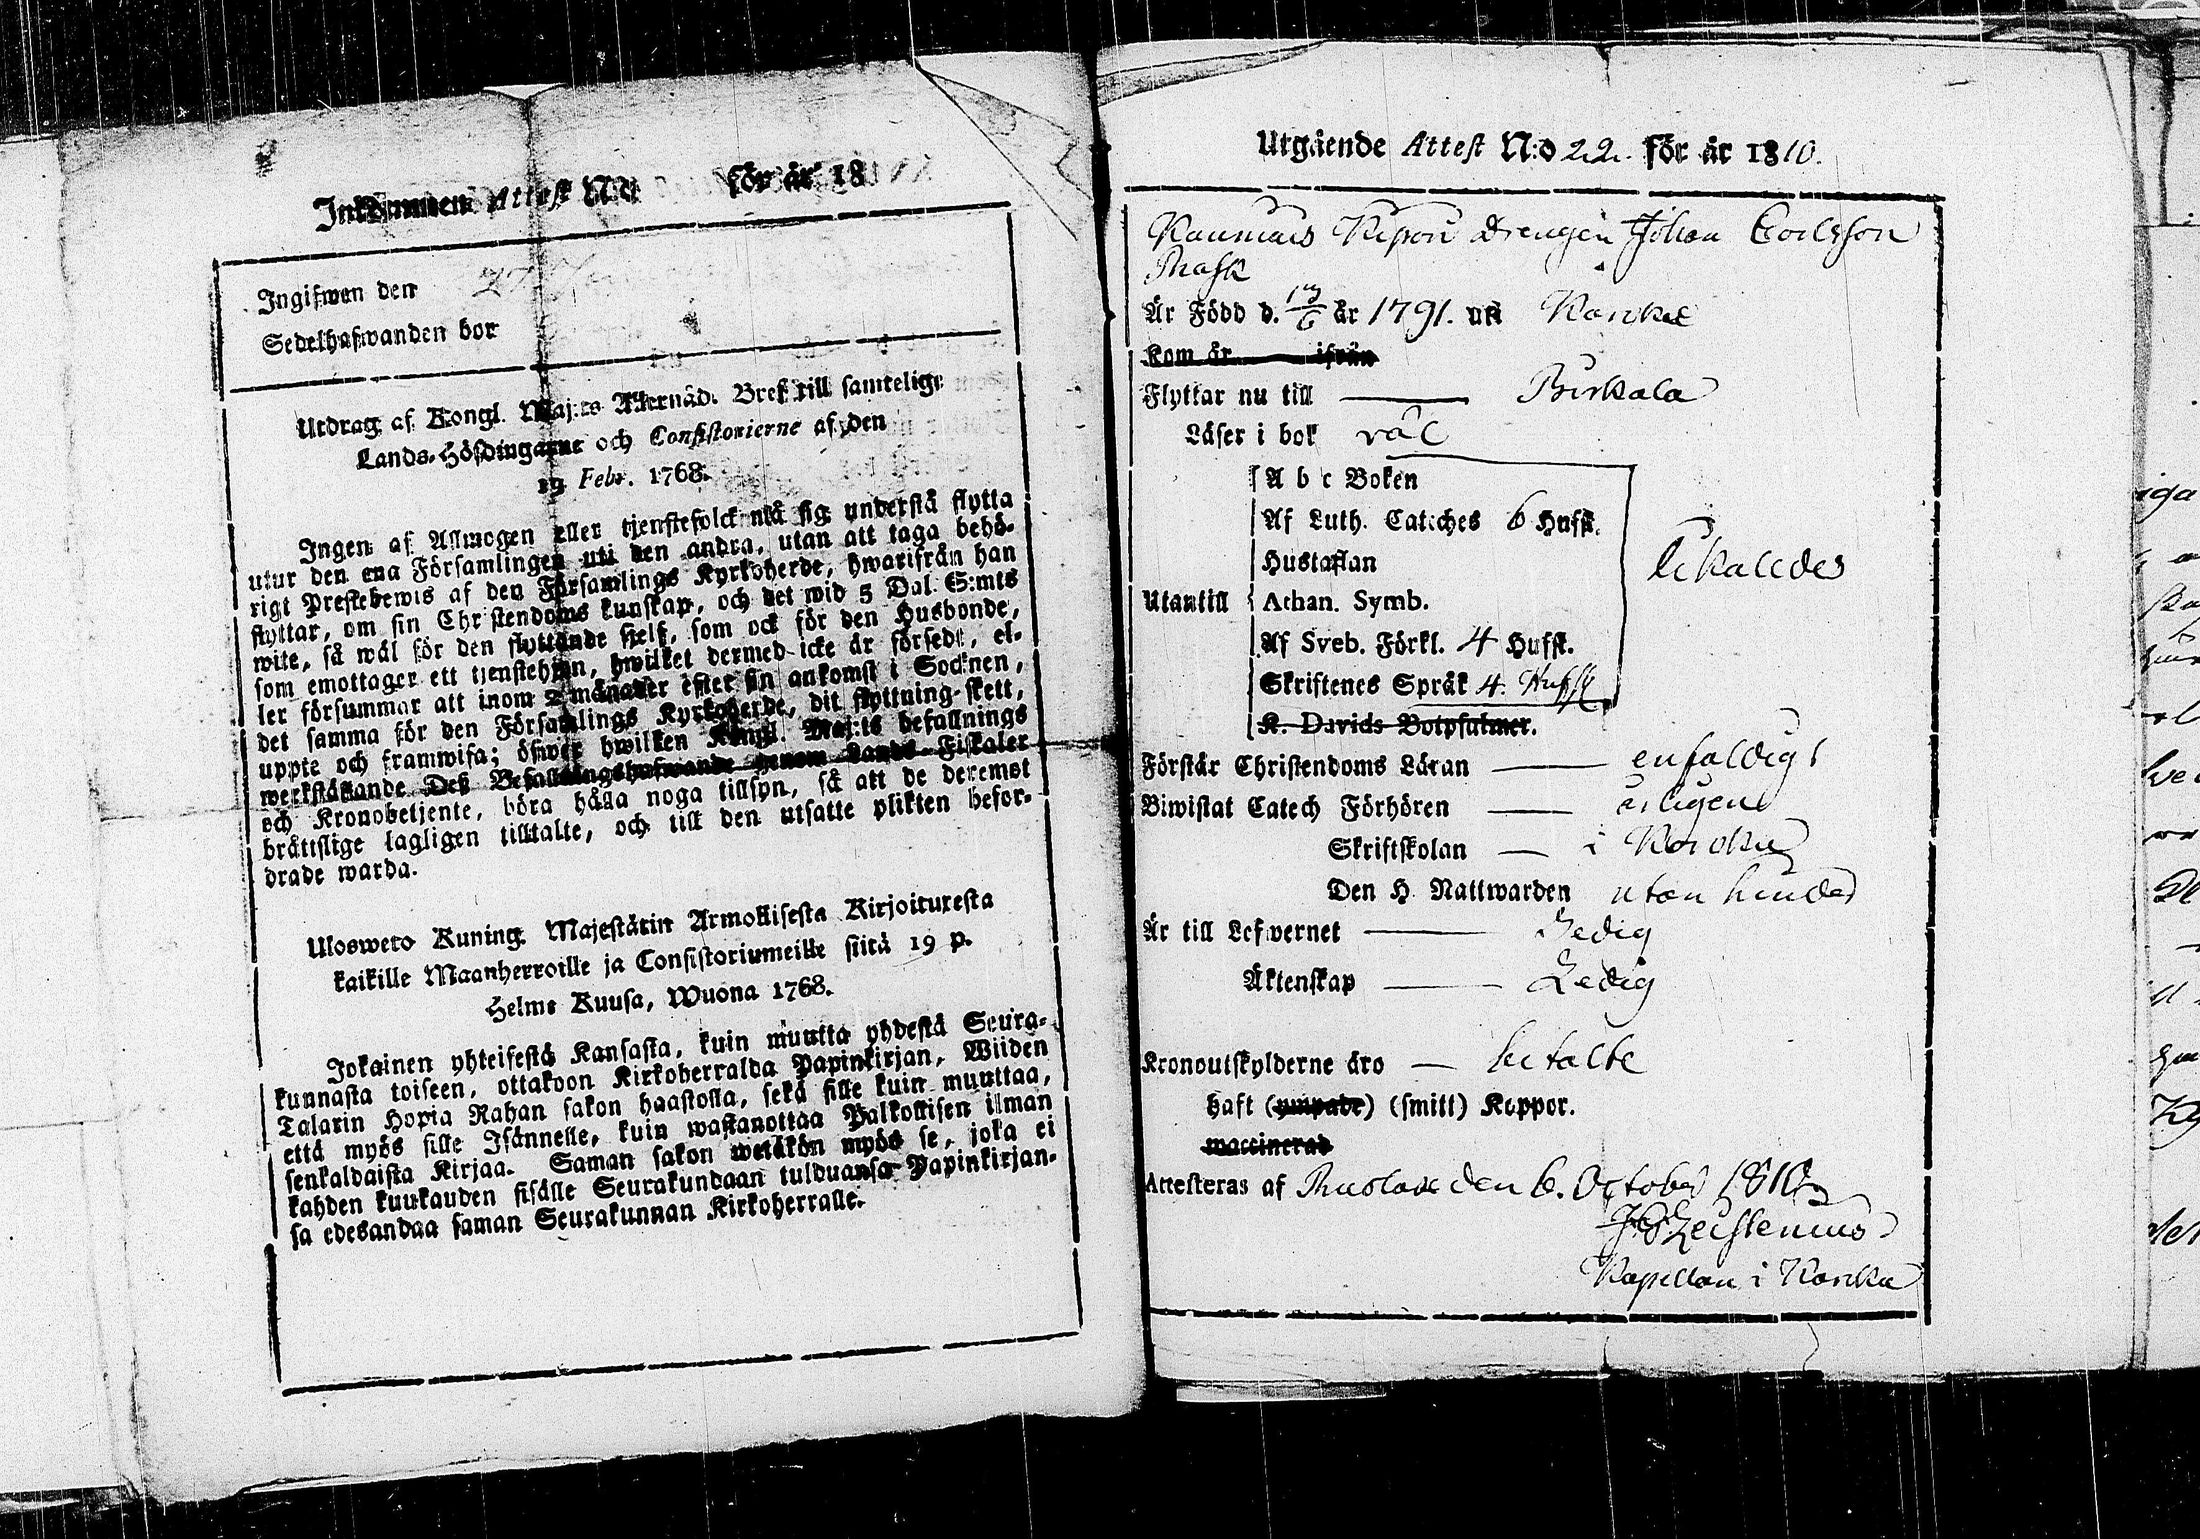 Inkommen Attest N:o för år 18
Ingifwen den
Sedelhafwanden bor
Utdrag af Kongl. Maj:ts Allernåd. Bref till samtelige
Lands-Höfdingarne och Consistorierne af den
19 Febr. 1768.
Ingen af Allmogen eller tjenstefolck må sig understå flytta
utur den ena Församlingen uti den andra, utan att taga behö-
rigt Prestebewis af den Församlings Kyrkoherde, hwarifrån han
flyttar, om sin Christendoms kunskap, och det wid 5 Dal. S:mts
wite, så wäl för den flyttande sielf, som ock för den Husbonde,
som emottager ett tjenstehion, hwilket dermed icke är försedt, el-
ler försummar att inom 2 månader efter sin ankomst i Socknen,
det samma för den Församlings Kyrkoherde, dit flyttning skett,
uppte och framwisa; öfwer hwilken Kongl. Maj:ts befallnings
werkställande Dess Befallningshafwande genom Lands-Fiskaler
och Kronobetjente, böra hålla noga tillsyn, så att de deremot
bråttslige lagligen tilltalte, och till den utsatte plikten befor-
drade warda.
Ulosweto Kuning. Majestätin Armollisesta Kirjoituresta
kaikille Maanherroille ja Consistoriumeille siitä 19 p.
Helme Kuusa, Wuona 1768.
Jokainen yhteisestä Kansasta, kuin muutta yhdestä Seura-
kunnasta toiseen, ottakoon Kirkoherralda Papinkirjan, Wiiden
Talarin Hopia Rahan sakon haastolla, sekä sille kuin muuttaa,
että myös sille Isännelle, kuin wastanottaa Palkollisen ilman
senkaldaista Kirjaa. Saman sakon wetäkön myös se, joka ei
kahden kuukauden sisälle Seurakundaan tulduansa Papinkirjan-
sa edesandaa saman Seurakunnan Kirkoherralle.
Utgående Attest N:o 22. för år 1810.
Drengen Johan Carlsson
Rask
Är Född d. 13/6 år 1791. uti Karcku
Kom år ifrån
Flyttar nu till Birkala
Läser i bok väl
A b c Boken
Af Luth. Cateches 6 Hufst.
Hustaflan
likaledes
Utantill Athan. Symb.
Af Sveb. Förkl. 4 Hufst.
Skriftenes Språk 4. Hufst
K. Davids Botpsalmer.
Förstår Christendoms Läran enfaldigt
Biwistat Catech Förhören årligen
Skriftskolan i Karcku
Den H. Nattwarden utan hinder
Är till Lefwernet Sedig
Äktenskap Ledig
Kronoutskylderne äro betalte
haft (ympade) (smitt) Koppor.
waccinerad
Attesteras af den 6. October 1810
Kapellan i Karcku